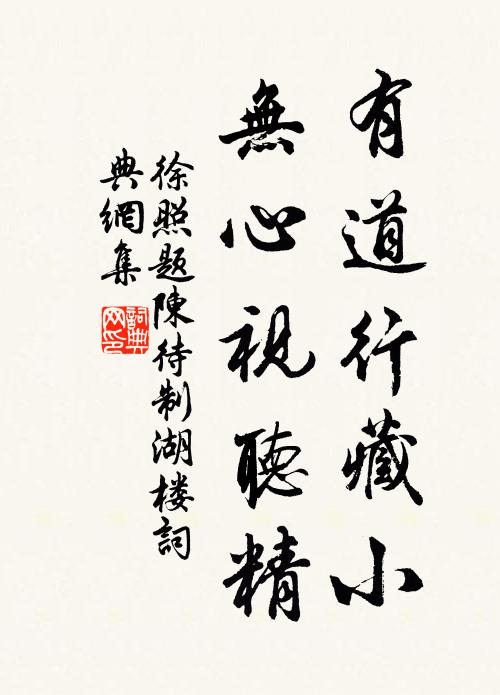 有道行藏小
無心視聽精
徐照題陳待制湖楼詞
典網集
詞典
网印